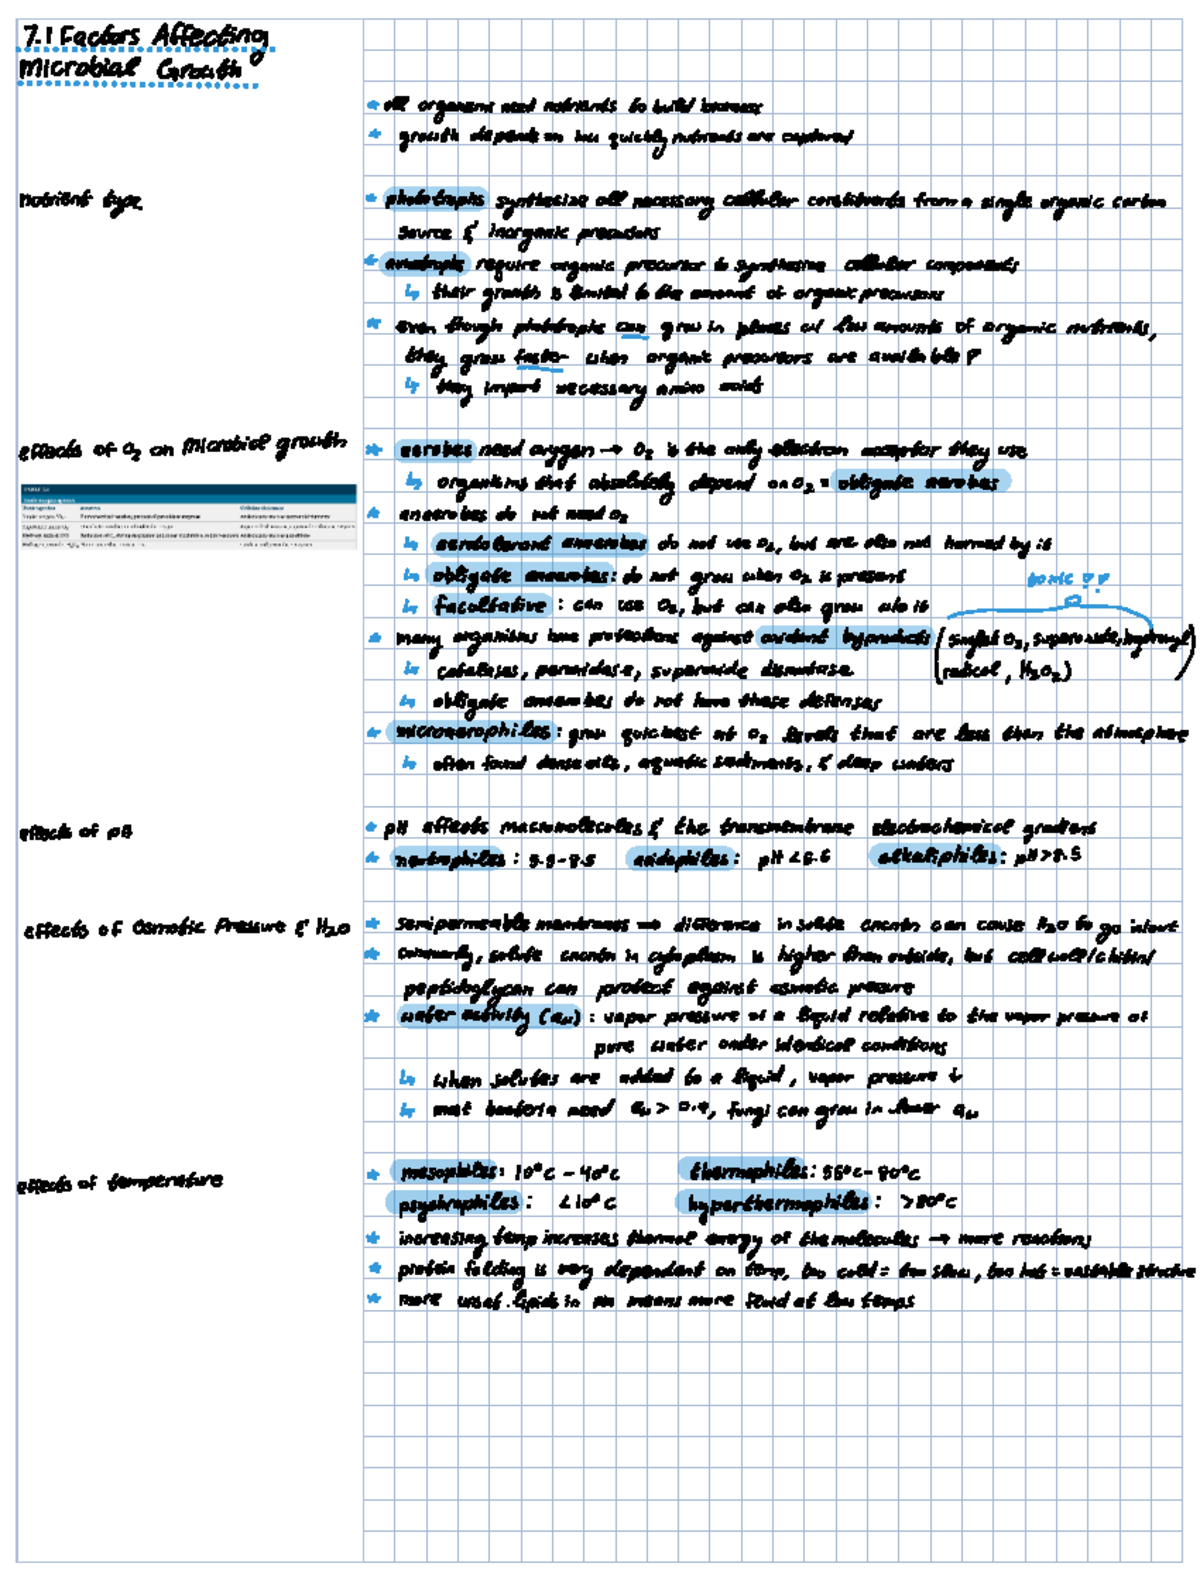 7.1 Factors Affecting
Microbial Growth
* all organisms need nutrients to build biomass
* growth depends on how quickly nutrients are captured
nutrient type
* synthesize all necessary cellular constituents from a single organic carbon
source & inorganic precursors
* require organic precursor to synthesize cellular components
↳ their growth is limited to the amount of organic precursors
* even though phototrophs can grow in places w/ low amounts of organic nutrients,
they grow faster when organic precursors are available
↳ they import necessary amino acids
effects of O₂ on microbial growth
* aerobes need oxygen → O₂ is the only electron acceptor they use
↳ organisms that absolutely depend on O₂ = obligate aerobes
* anaerobes do not need O₂
↳ aerotolerant anaerobes do not use O₂, but are also not harmed by it
↳ obligate anaerobes: do not grow when O₂ is present
toxic
↳ facultative: can use O₂, but can also grow w/o it
* many organisms have protections against oxidant byproducts (singlet O₂, superoxide, hydroxyl
radical, H₂O₂)
↳ catalases, peroxidase, superoxide dismutase
↳ obligate anaerobes do not have these defenses
* microaerophiles: grow quickest at O₂ levels that are less than the atmosphere
↳ often found aquatic sediments, & deep waters
effects of pH
* pH affects macromolecules & the transmembrane electrochemical gradient
* neutrophiles: 5.5-8.5 acidophiles: pH < alkaliphiles: pH > 8.5
effects of Osmotic Pressure & H₂O
* semipermeable membranes → difference in solute cncntn can cause H₂O to go in/out
* commonly, solute cncntn in cytoplasm is higher than outside, but cell wall/chitin/
peptidoglycan can protect against osmotic pressure
* water activity (aw): vapor pressure of a liquid relative to the vapor pressure of
pure water under identical conditions
↳ when solutes are added to a liquid, vapor pressure ↓
↳ most bacteria need aw > 0.9, fungi can grow in lower aw
effects of temperature
* mesophiles: 10°C - 40°C thermophiles: 55°C - 80°C
psychrophiles: <10°C hyperthermophiles: >80°C
* increasing temp increases thermal energy of the molecules → more reactions
* protein folding is very dependent on temp, too cold = too slow, too hot = unstable structure
* more unsat. lipids in means more fluid at low temps